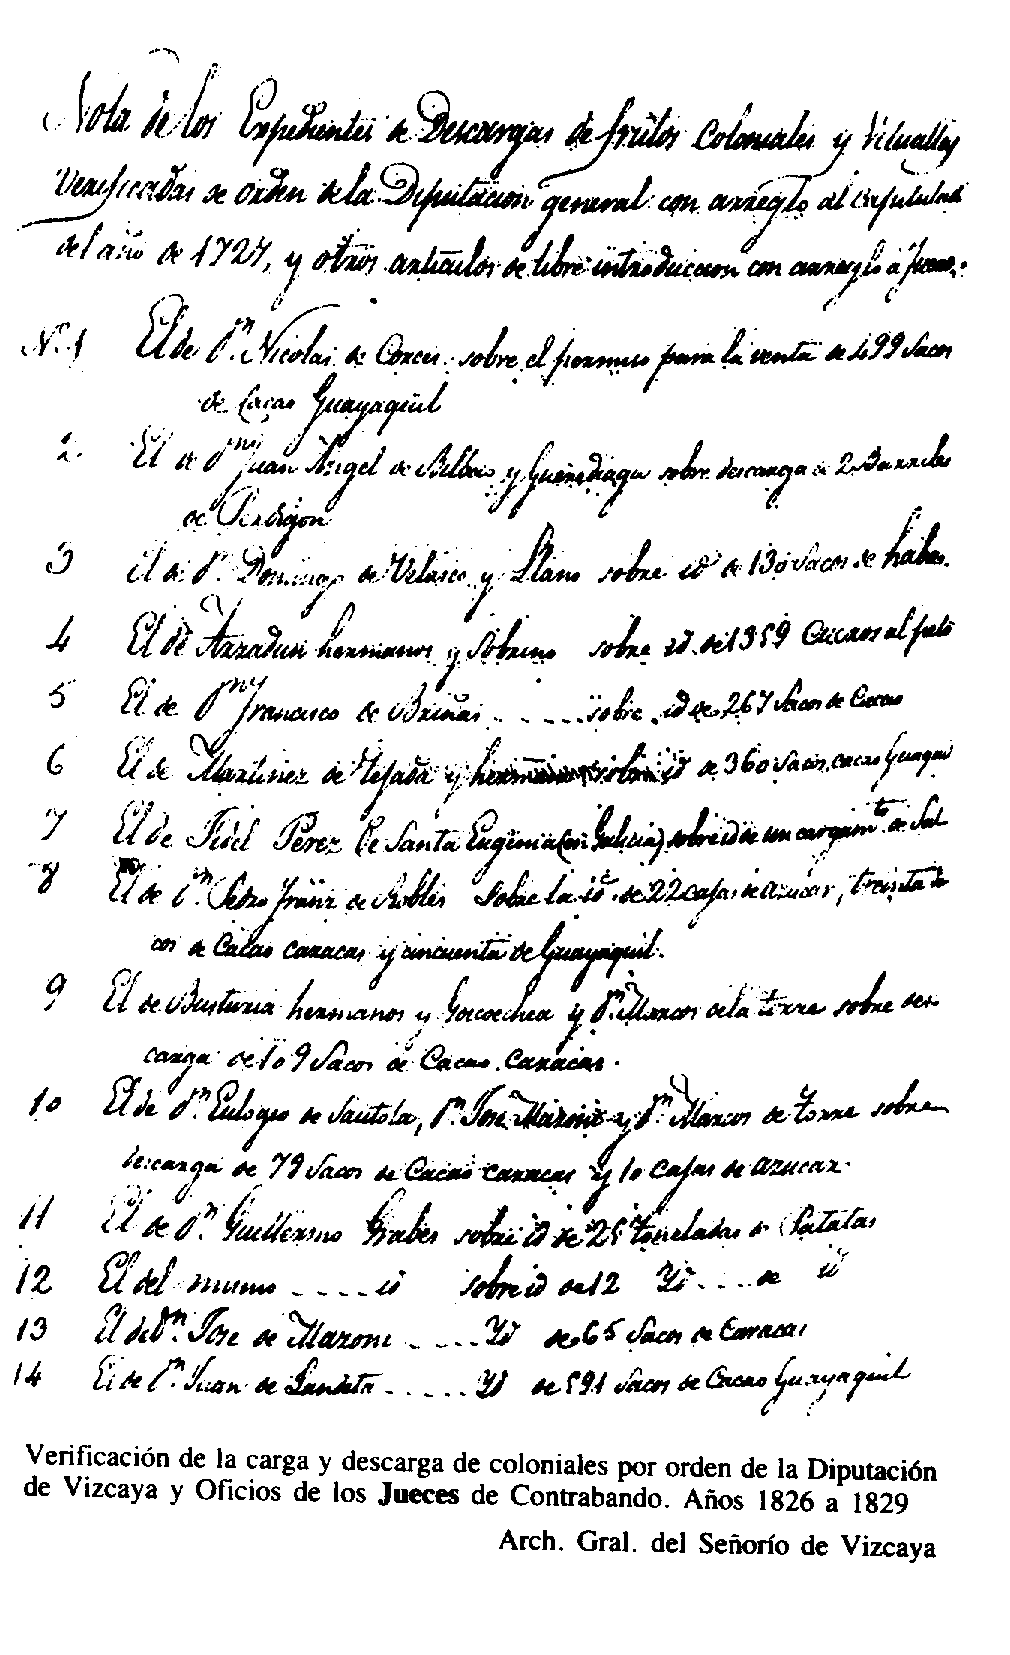 Nota de los Expedientes de Descargas de frutos Coloniales y Vituallas
Verificadas de orden de la Diputacion general con arreglo al capitulado
del año de 1727, y otros articulos de libre introduccion con arreglo a fuero.
N.º 1 El de Dn. Nicolas de sobre el permiso para la venta de 499 Sacos
de Cacao Guayaquil
2. El de Dn. Juan Angel de Bilbao y sobre descarga de 2 Barriles
de Perdigon
3 El de Dn. Domingo de Velasco y Llano sobre id de 130 Sacos de habas.
4 El de hermanos y Sobrino sobre id. de 1359 Cueros al pelo
5 El de Dn. Francisco de Briñas - - - - - sobre id de 267 Sacos de Cacao
6 El de Martinez de Tejada y sobre id de 360 Sacos cacao Guayaquil
7 El de Fidel Perez de Santa Eugenia (en Galicia) sobre id de un cargamto. de Sal
8 El de Dn. Pedro de Robles Sobre la id. de 22 cajas de azucar, treinta sa-
cos de Cacao caracas y cincuenta de Guayaquil.
9 El de Busturia hermanos y Goicoechea y Dn. Marcos de la torre sobre des-
carga de 109 Sacos de Cacao Caracas.
10 El de Dn. Eulogio de Sautola, Dn. José y Dn. Marcos de torre sobre
descarga de 79 Sacos de Cacao caracas y 10 cajas de azucar.
11 El de Dn. Guillermo sobre id de 25 toneladas de Patatas
12 El del mismo - - - - id sobre id de 12 Yd - - - de id
13 El de Dn. Jose de Mazon - - - - Yd de 65 Sacos de Caracas
14 El de Dn. Juan de Landeta - - - - - Yd de 591 Sacos de Cacao Guayaquil
Verificación de la carga y descarga de coloniales por orden de la Diputación
de Vizcaya y Oficios de los Jueces de Contrabando. Años 1826 a 1829
Arch. Gral. del Señorío de Vizcaya